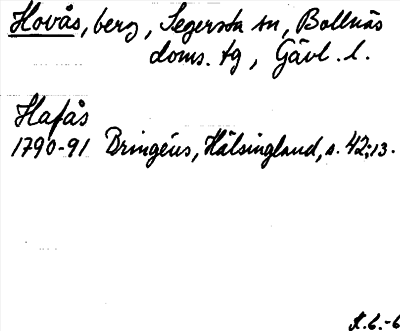 Hovås, berg, Segersta sn, Bollnäs
doms. tg, Gävl. l.
Hafås
1790-91 Bringéus, Hälsingland, s. 42; 13.